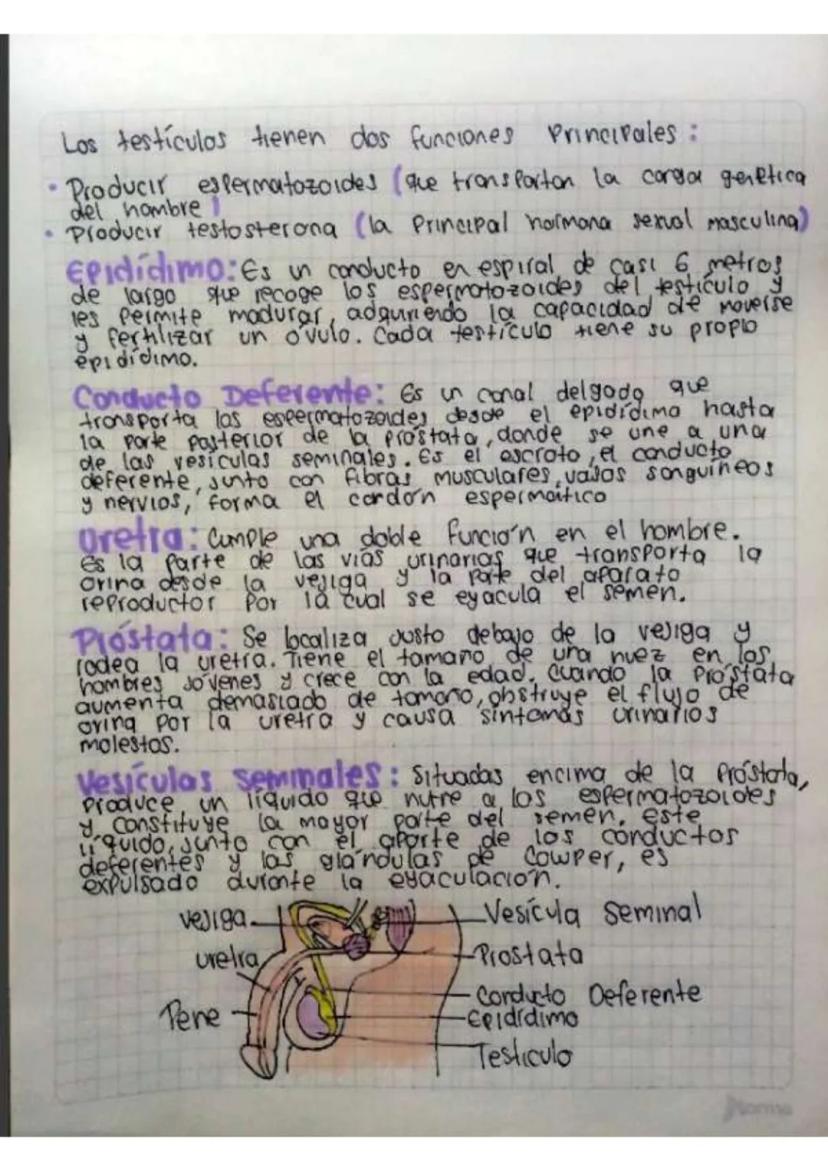 Los testículos tienen dos funciones Principales:
• Producir espermatozoides (que transportan la carga genética
del hombre)
• Producir testosterona (la Principal hormona sexual masculina)
Epidídimo: Es un conducto en espiral de casi 6 metros
de largo que recoge los espermatozoides del testículo y
les permite madurar, adquiriendo la capacidad de moverse
y fertilizar un óvulo. Cada testículo tiene su propio
epidídimo.
Conducto Deferente: Es un canal delgado que
transporta los espermatozoides desde el epidídimo hasta
la parte posterior de la próstata, donde se une a una
de las vesículas seminales. Es el escroto, el conducto
deferente, junto con fibras musculares, vasos sanguíneos
y nervios, forma el cordón espermático
Uretra: Cumple una doble función en el hombre.
Es la parte de las vías urinarias que transporta la
orina desde la vejiga y la parte del aparato
reproductor por la cual se eyacula el semen.
Próstata: Se localiza Justo debajo de la vejiga y
rodea la uretra. Tiene el tamaño de una nuez en los
hombres jóvenes y crece con la edad. Cuando la Próstata
aumenta demasiado de tamaño, obstruye el flujo de
orina por la uretra y causa síntomas urinarios
molestos.
Vesículas Seminales: Situadas encima de la Próstata,
produce un líquido que nutre a los espermatozoides
y constituye la mayor parte del semen, este
líquido, junto con el aporte de los conductos
deferentes y las glándulas de Cowper, es
expulsado durante la eyaculación.
vejiga
Vesícula Seminal
uretra
Prostata
Conducto Deferente
Pene
Epidídimo
Testiculo
Norma